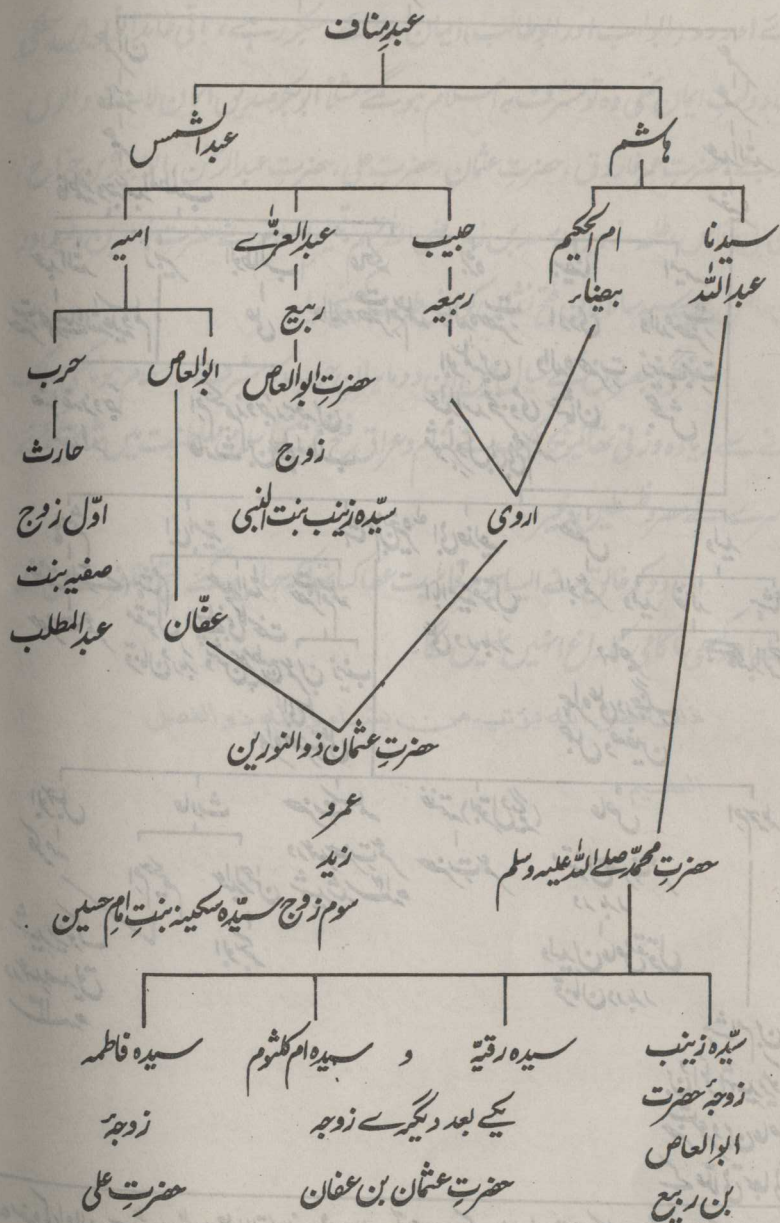 عبدِ مناف
ہاشم
عبدالشمس
سیدنا
عبداللہ
ام الحکیم
بیضاء
حبیب
ربیعہ
عبدالعزّٰے
ربیع
حضرتِ ابوالعاص
زوج
سیّدہ زینب بنت النبی
امیہ
ابوالعاص
حرب
حارث
اوّل زوج
صفیہ بنت
عبدالمطلب
اروی
عفّان
حضرتِ عثمان ذوالنورین
عمرو
زید
سوم زوج سیّدہ سکینہ بنتِ امامِ حسین
حضرتِ محمدّ صلے اللہ علیہ وسلم
سیّدہ زینب
زوجۂ حضرت
ابوالعاص
بن ربیع
سیدہ رقیّہ و سیدہ ام کلثوم
یکے بعد دیگرے زوجہ
حضرتِ عثمان بن عفان
سیدہ فاطمہ
زوجۂ
حضرتِ علی